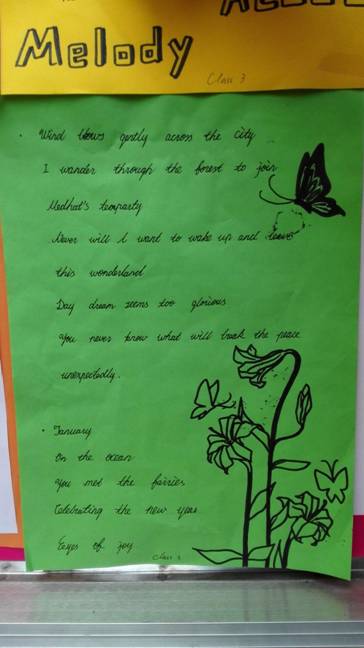 Melody
Class 3
• Wind blows gently across the city
I wander through the forest to join
Madhat's teaparty
Never will I want to wake up and leave
this wonderland
Day dream seems too glorious
You never know what will break the peace
unexpectedly.
• January
On the ocean
You met the fairies
Celebrating the new year.
Eeyes of joy
Class 3